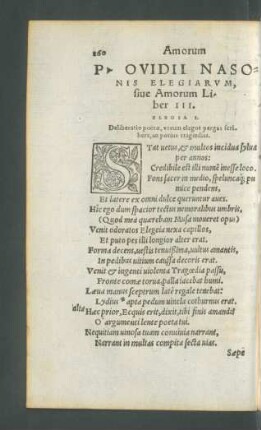 260 Amorum
P. OVIDII NASO-
NIS ELEGIARVM,
siue Amorum Li-
ber III.
ELEGIA I.
Deliberatio poëtæ, vtrum elegos pergat scri-
bere, an potius tragœdias.
STat uetus, & multos incædua sylua
per annos:
Credibile est illi numē inesse loco.
Fons sacer in medio, speluncaq; pu
mice pendens,
Et latere ex omni dulce queruntur aues.
Hic ego dum spacior tectus nemoralibus umbris,
(Quod mea quærebam Musa moueret opus)
Venit odoratos Elegia nexa capillos,
Et puto pes illi longior alter erat.
Forma decens, uestis tenuissima, uultus amantis,
In pedibus uitium caussa decoris erat.
Venit & ingenti uiolenta Tragœdia passu,
Fronte comæ torua, palla iacebat humi.
Læua manus sceptrum late regale tenebat:
Lydius * apta pedum uincla cothurnus erat.
alta Hæc prior, Ecquis erit, dixit, tibi finis amandi
O argumenti lente poëta tui.
Nequitiam uinosa tuam conuiuia narrant,
Narrant in multas compita secta uias.
Sæpe